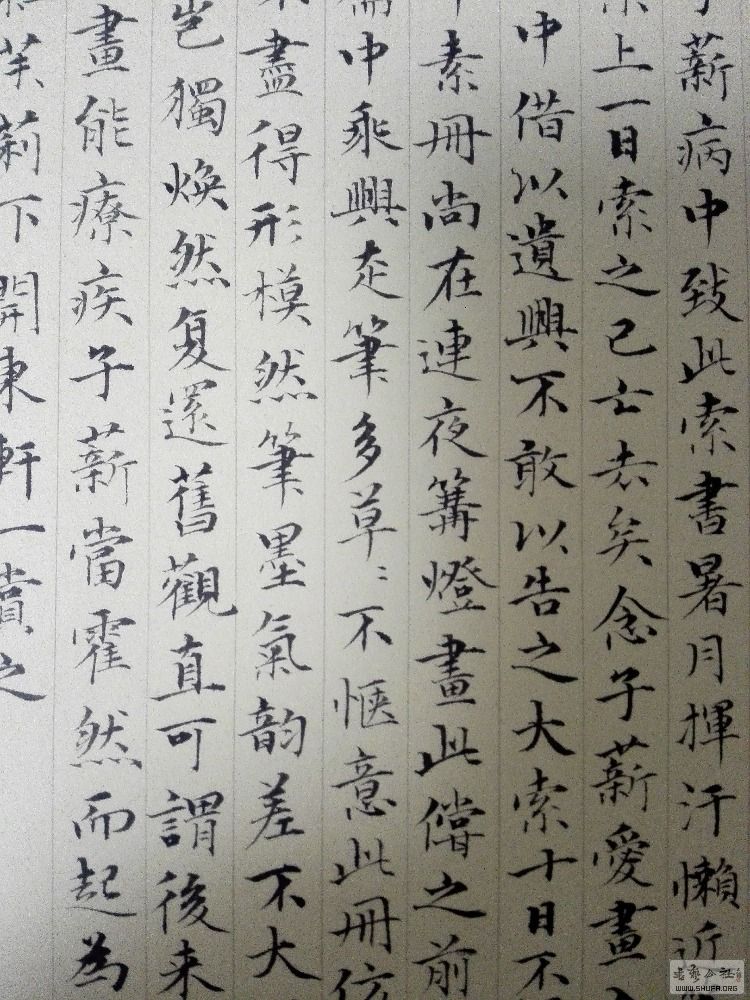 薪病中致此索書暑月揮汗懶近
上一日索之已士去矣念子薪愛畫
中借以遺興不敢以告之大索十日不
素冊尚在連夜篝燈畫此償之前
中乘興走筆多草〻不愜意此冊
盡得形模然筆墨氣韵差不大
豈獨焕然复還舊觀直可謂後来
畫能療疾子薪當霍然而起為
茉莉下開東軒一賞之
www.shufa.org